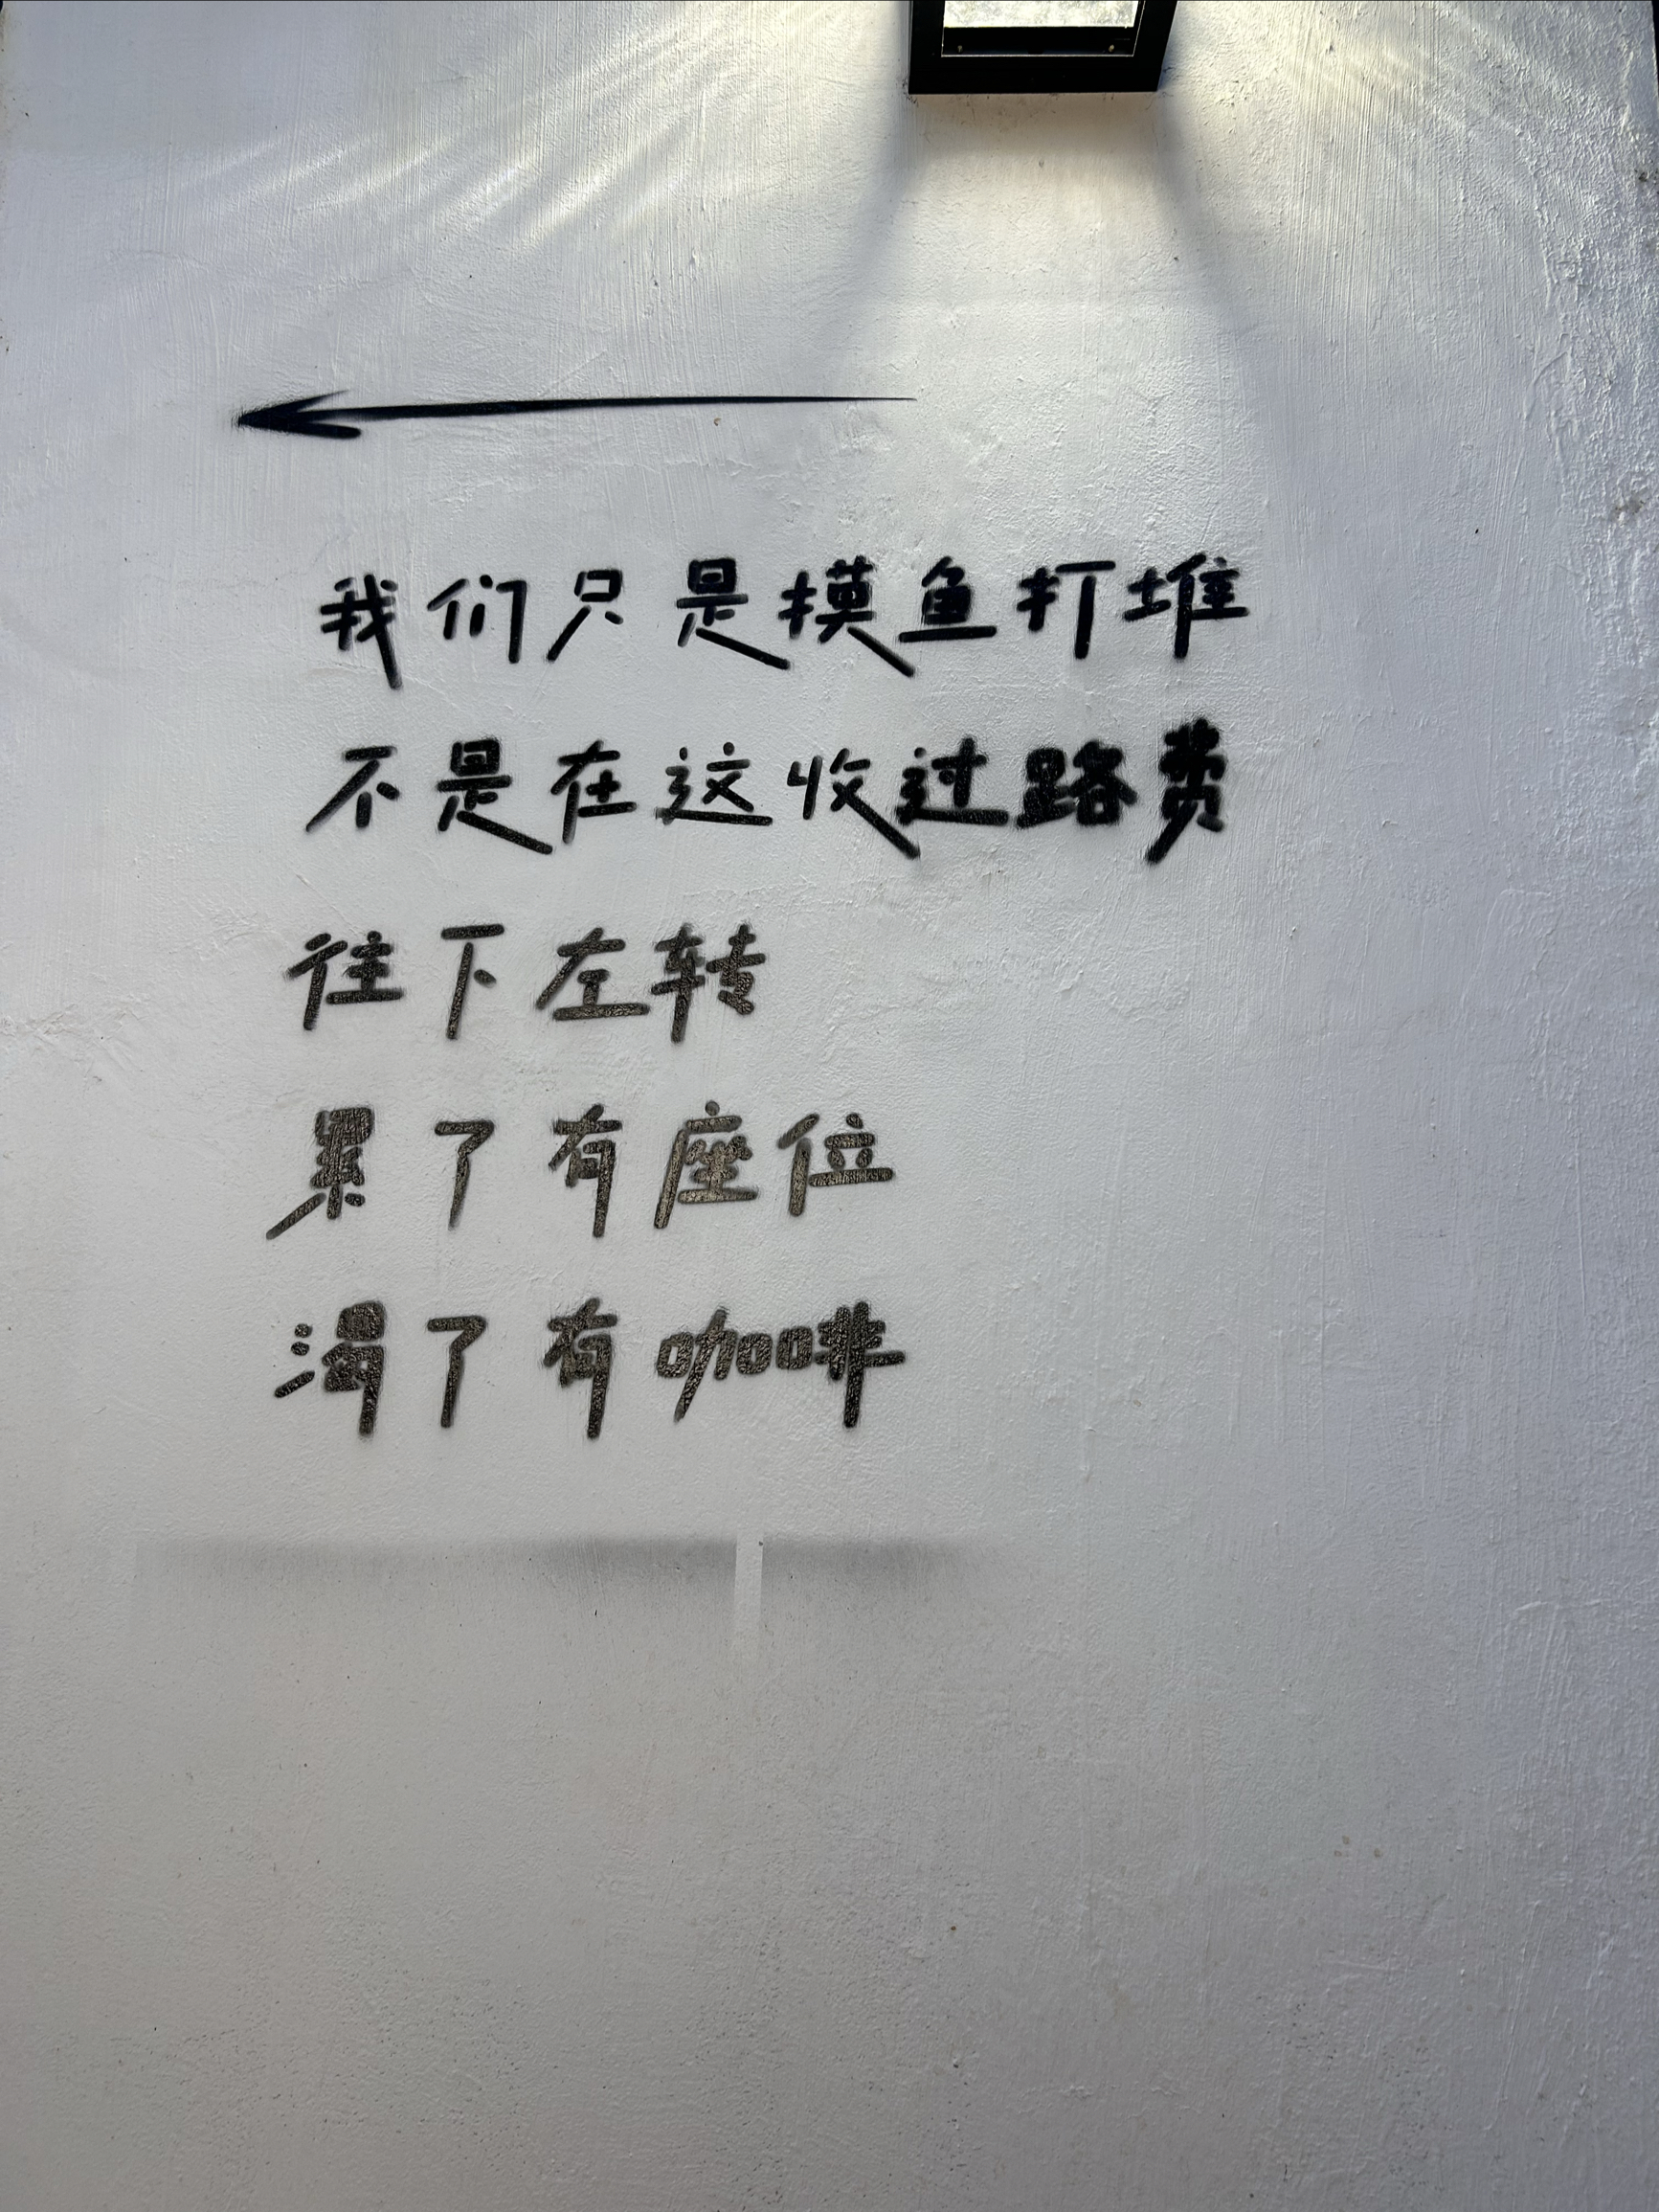 我们只是摸鱼打堆
不是在这收过路费
往下左转
累了有座位
渴了有咖啡